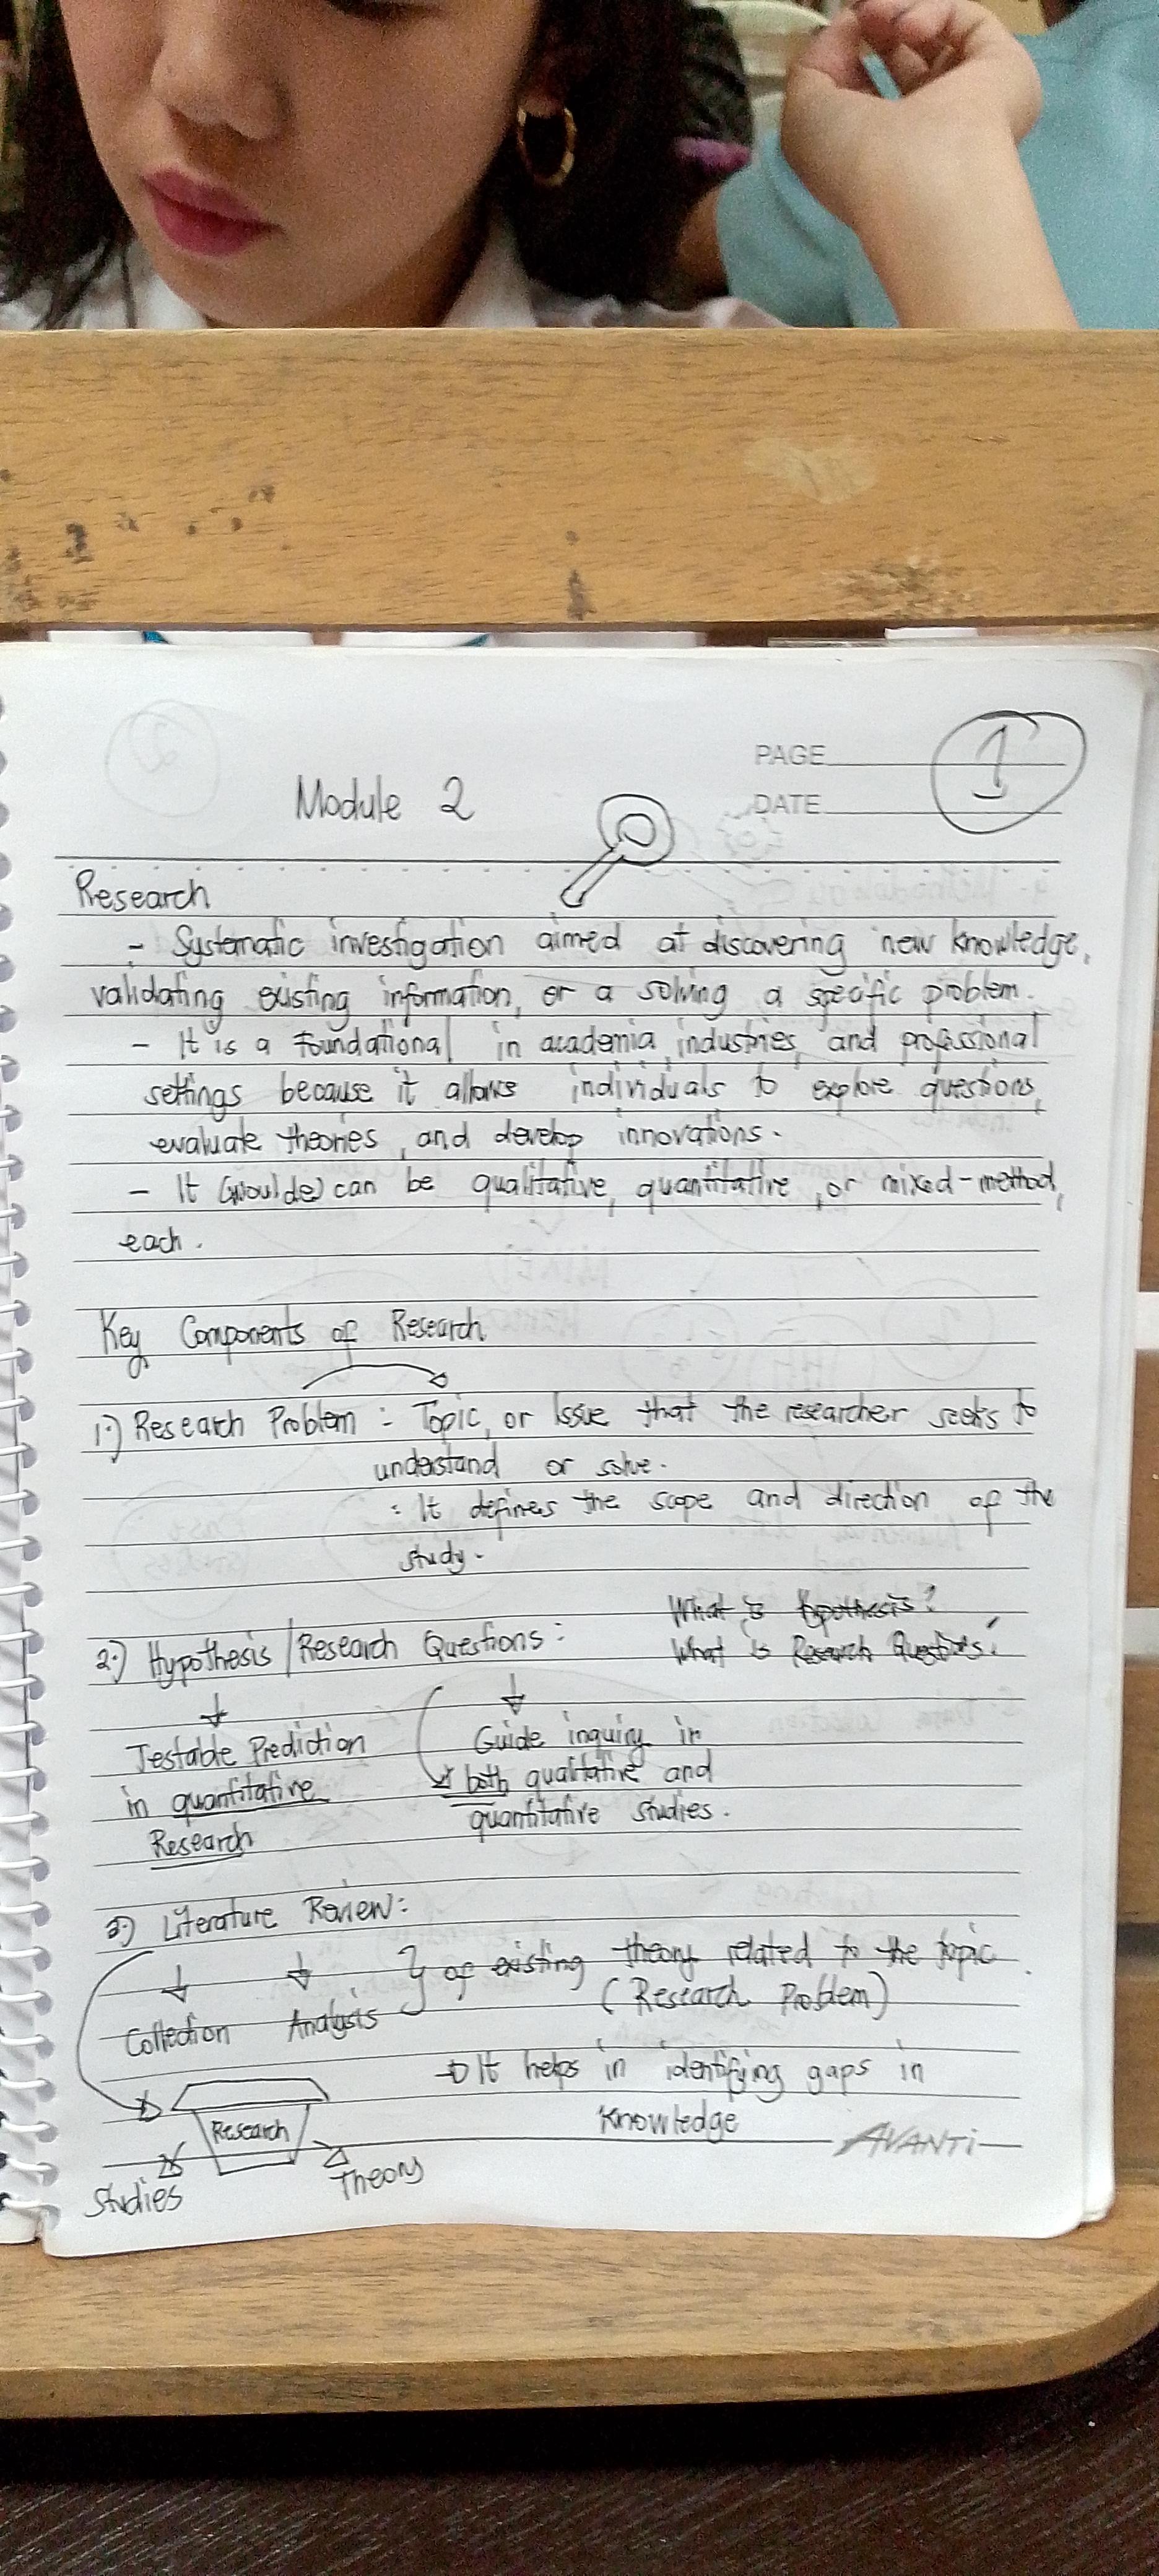 PAGE
1
DATE
Module 2
Research
- Systematic investigation aimed at discovering new knowledge,
validating existing information, or a solving a specific problem.
- It is a foundational in academia, industries, and professional
settings because it allows individuals to explore questions,
evaluate theories, and develop innovations.
- It (woulde) can be qualitative, quantitative, or mixed-method,
each.
Key Components of Research
1.) Research Problem : Topic, or Issue that the researcher seeks to
understand or solve.
: It defines the scope and direction of the
study.
What is hypothesis?
2.) Hypothesis / Research Questions :
What is Research Questions?
Testable Prediction
in quantitative
Research
Guide inquiry in
both qualitative and
quantitative studies.
3.) Literature Review:
Collection Analysis } of existing theory related to the topic.
(Research Problem)
It helps in identifying gaps in
knowledge
Research
Studies
Theory
AVANTi